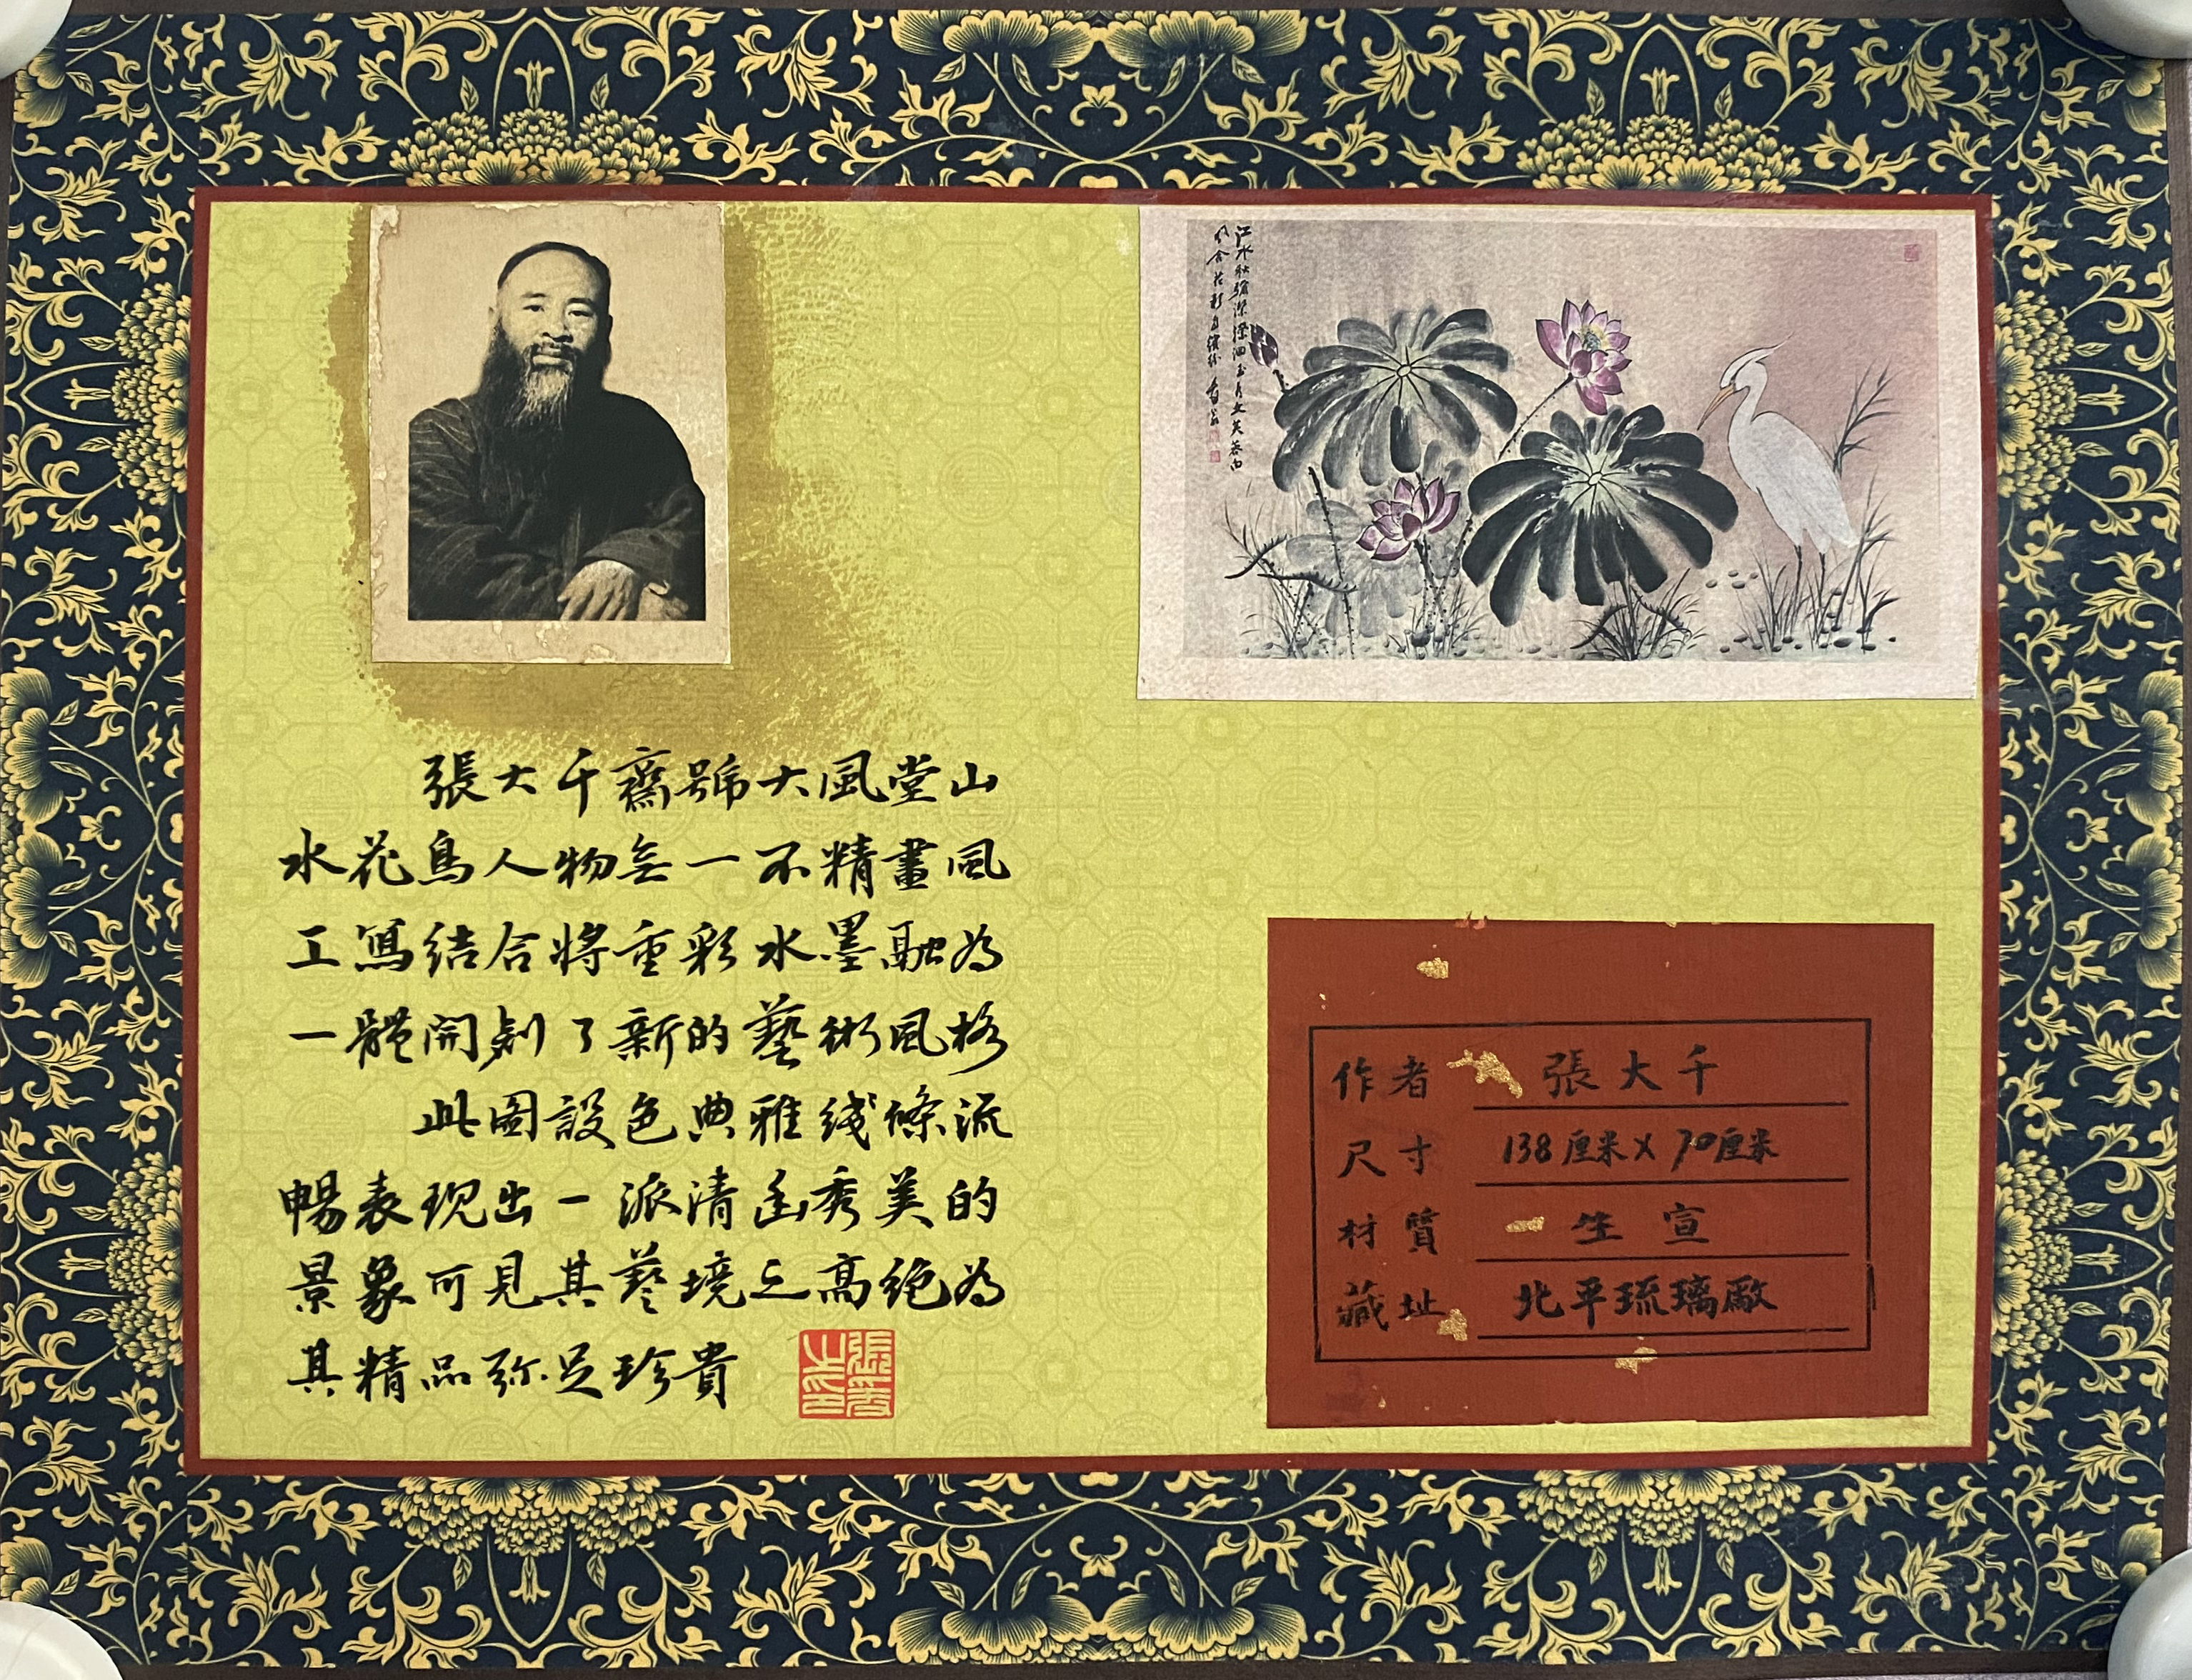 張大千齋號大風堂山
水花鳥人物無一不精畫風
工寫結合將重彩水墨融為
一體開創了新的藝術風格
此圖設色典雅綫條流
暢表現出一派清幽秀美的
景象可見其藝境之高絕為
其精品弥足珍貴
作者 張大千
尺寸 138厘米X70厘米
材質 生宣
藏址 北平琉璃廠